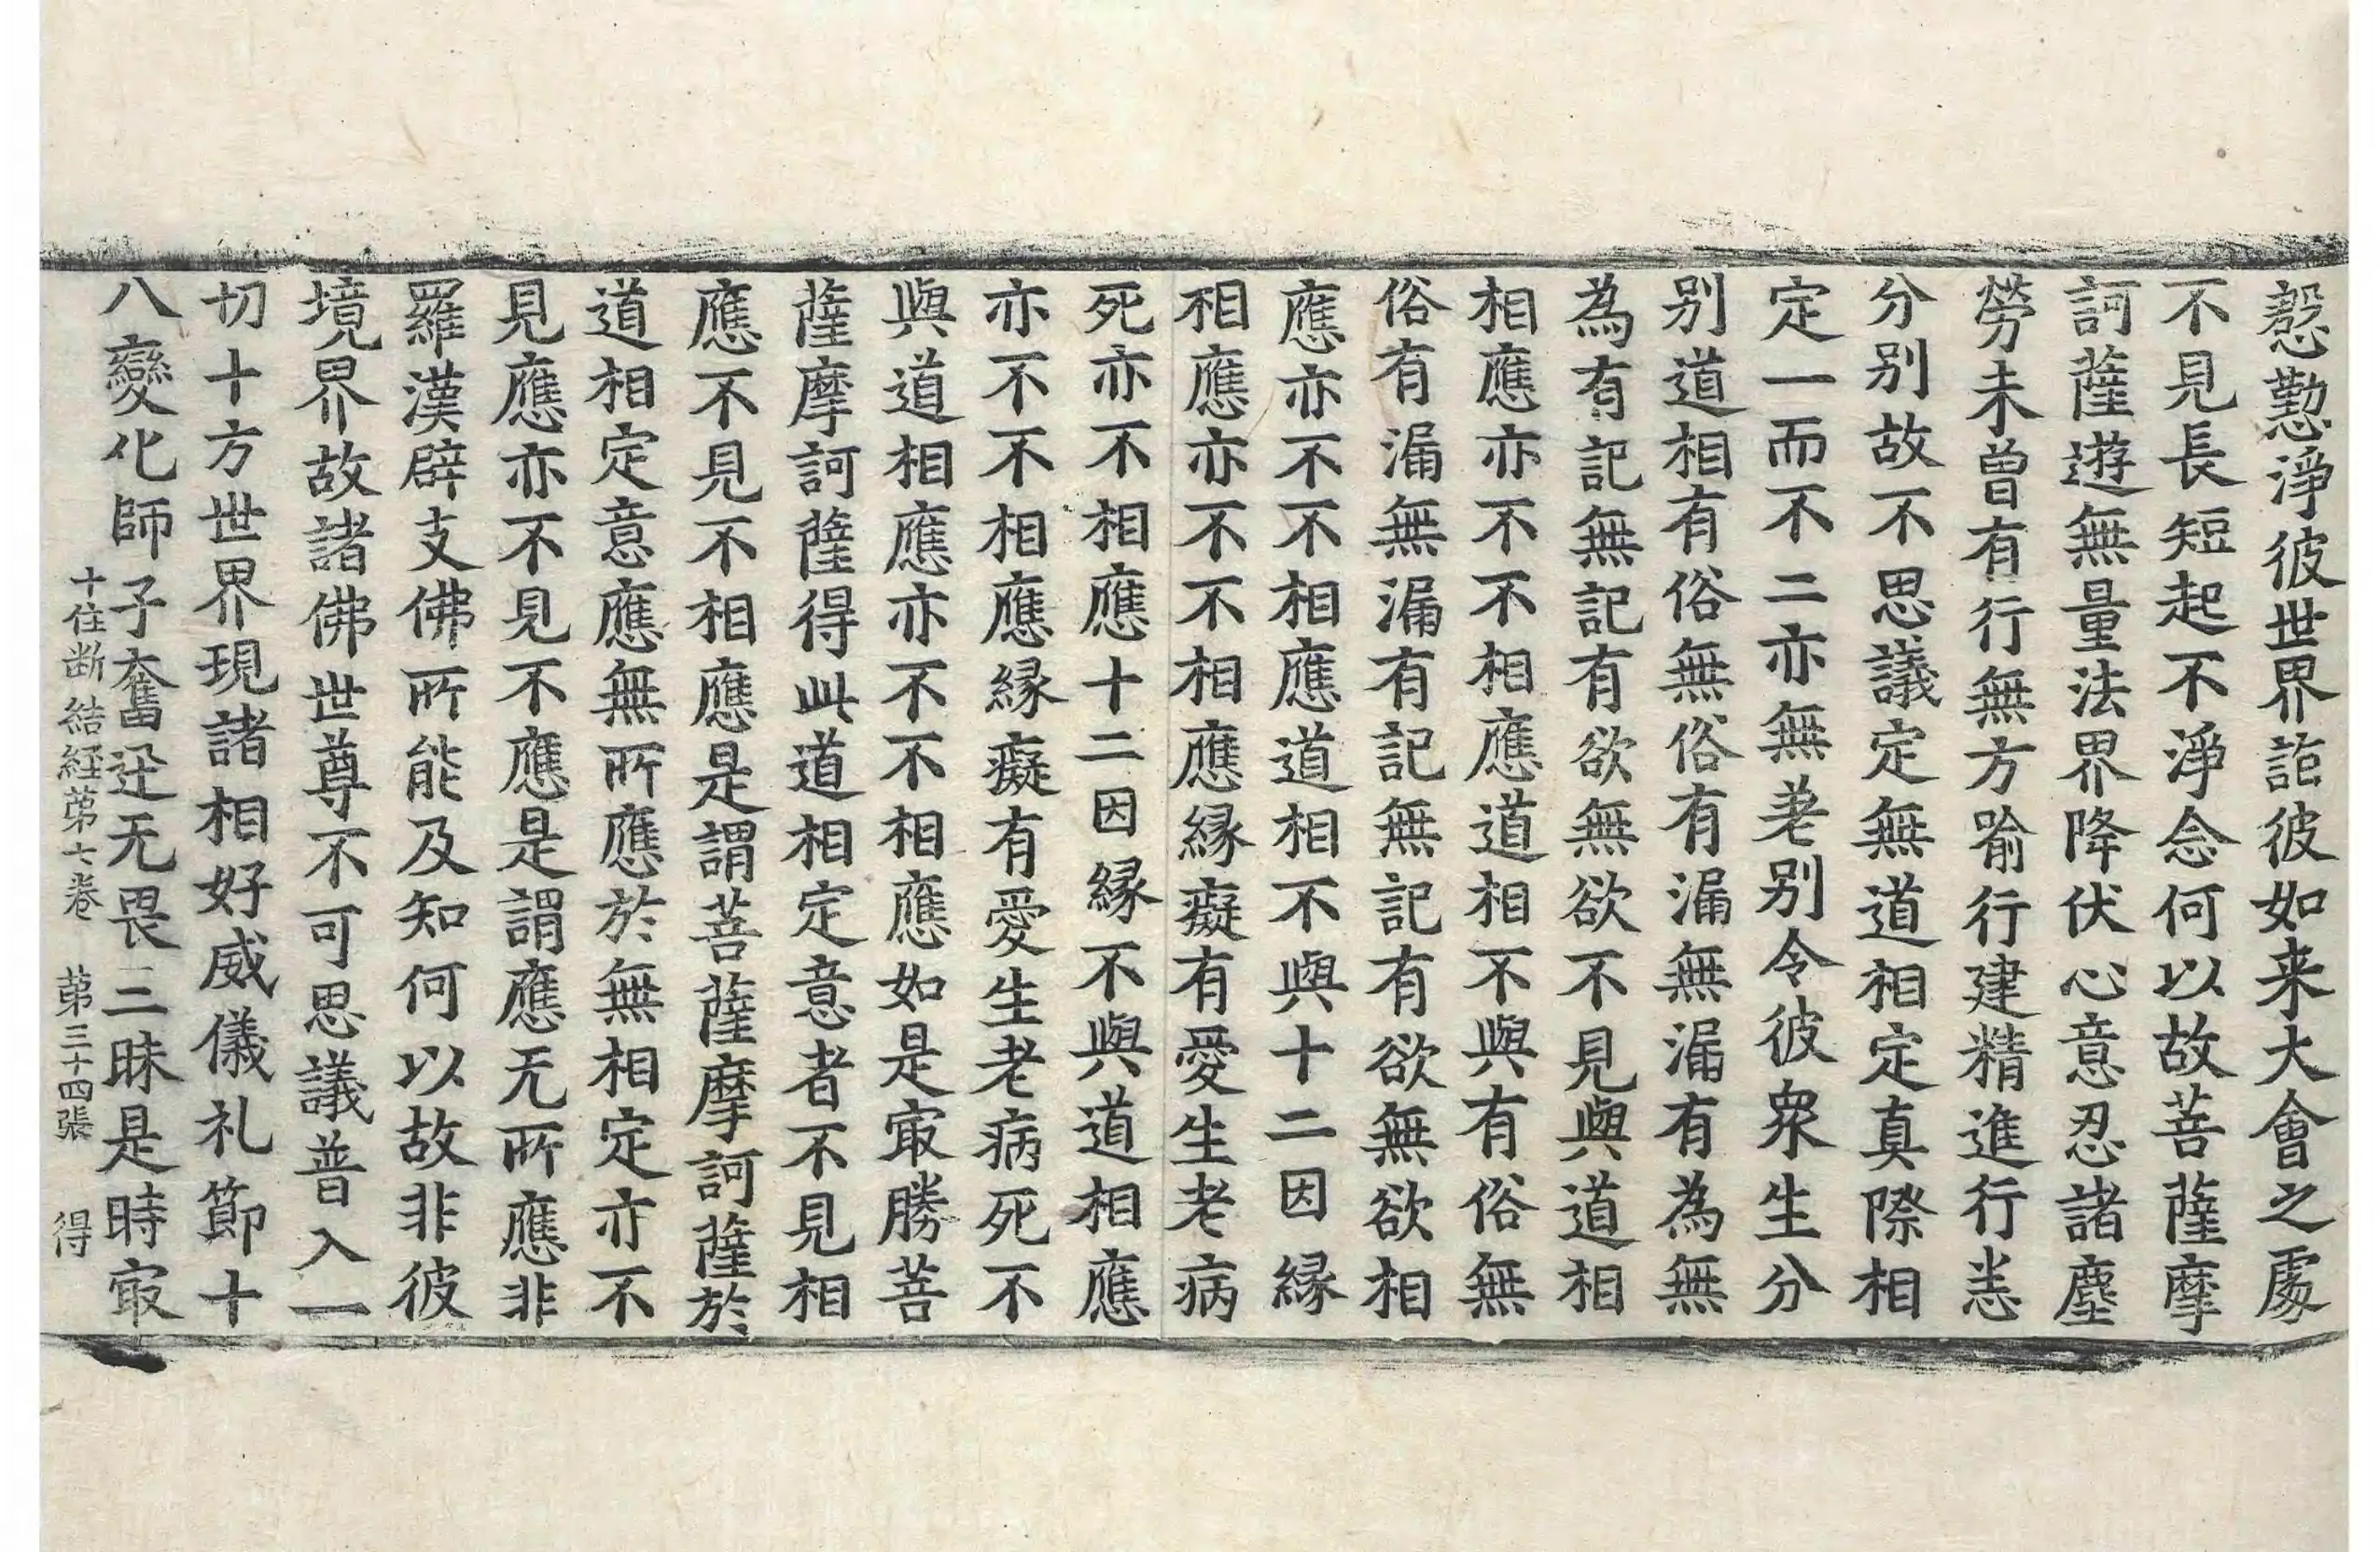 慇懃淨彼世界詣彼如来大會之處
不見長短起不淨念何以故菩薩摩
訶薩遊無量法界降伏心意忍諸塵
勞未曾有行無方喻行建精進行恙
分别故不思議定無道相定真際相
定一而不二亦無差别令彼衆生分
别道相有俗無俗有漏無漏有為無
為有記無記有欲無欲不見與道相
相應亦不不相應道相不與有俗無
俗有漏無漏有記無記有欲無欲相
應亦不不相應道相不與十二因縁
相應亦不不相應縁癡有愛生老病
死亦不相應十二因縁不與道相應
亦不不相應縁癡有愛生老病死不
與道相應亦不不相應如是㝡勝菩
薩摩訶薩得此道相定意者不見相
應不見不相應是謂菩薩摩訶薩於
道相定意應無所應於無相定亦不
見應亦不見不應是謂應无所應非
羅漢辟支佛所能及知何以故非彼
境界故諸佛世尊不可思議普入一
切十方世界現諸相好威儀礼節十
八變化師子奮迅无畏三昧是時㝡
十住断結経苐七卷　苐三十四張　得